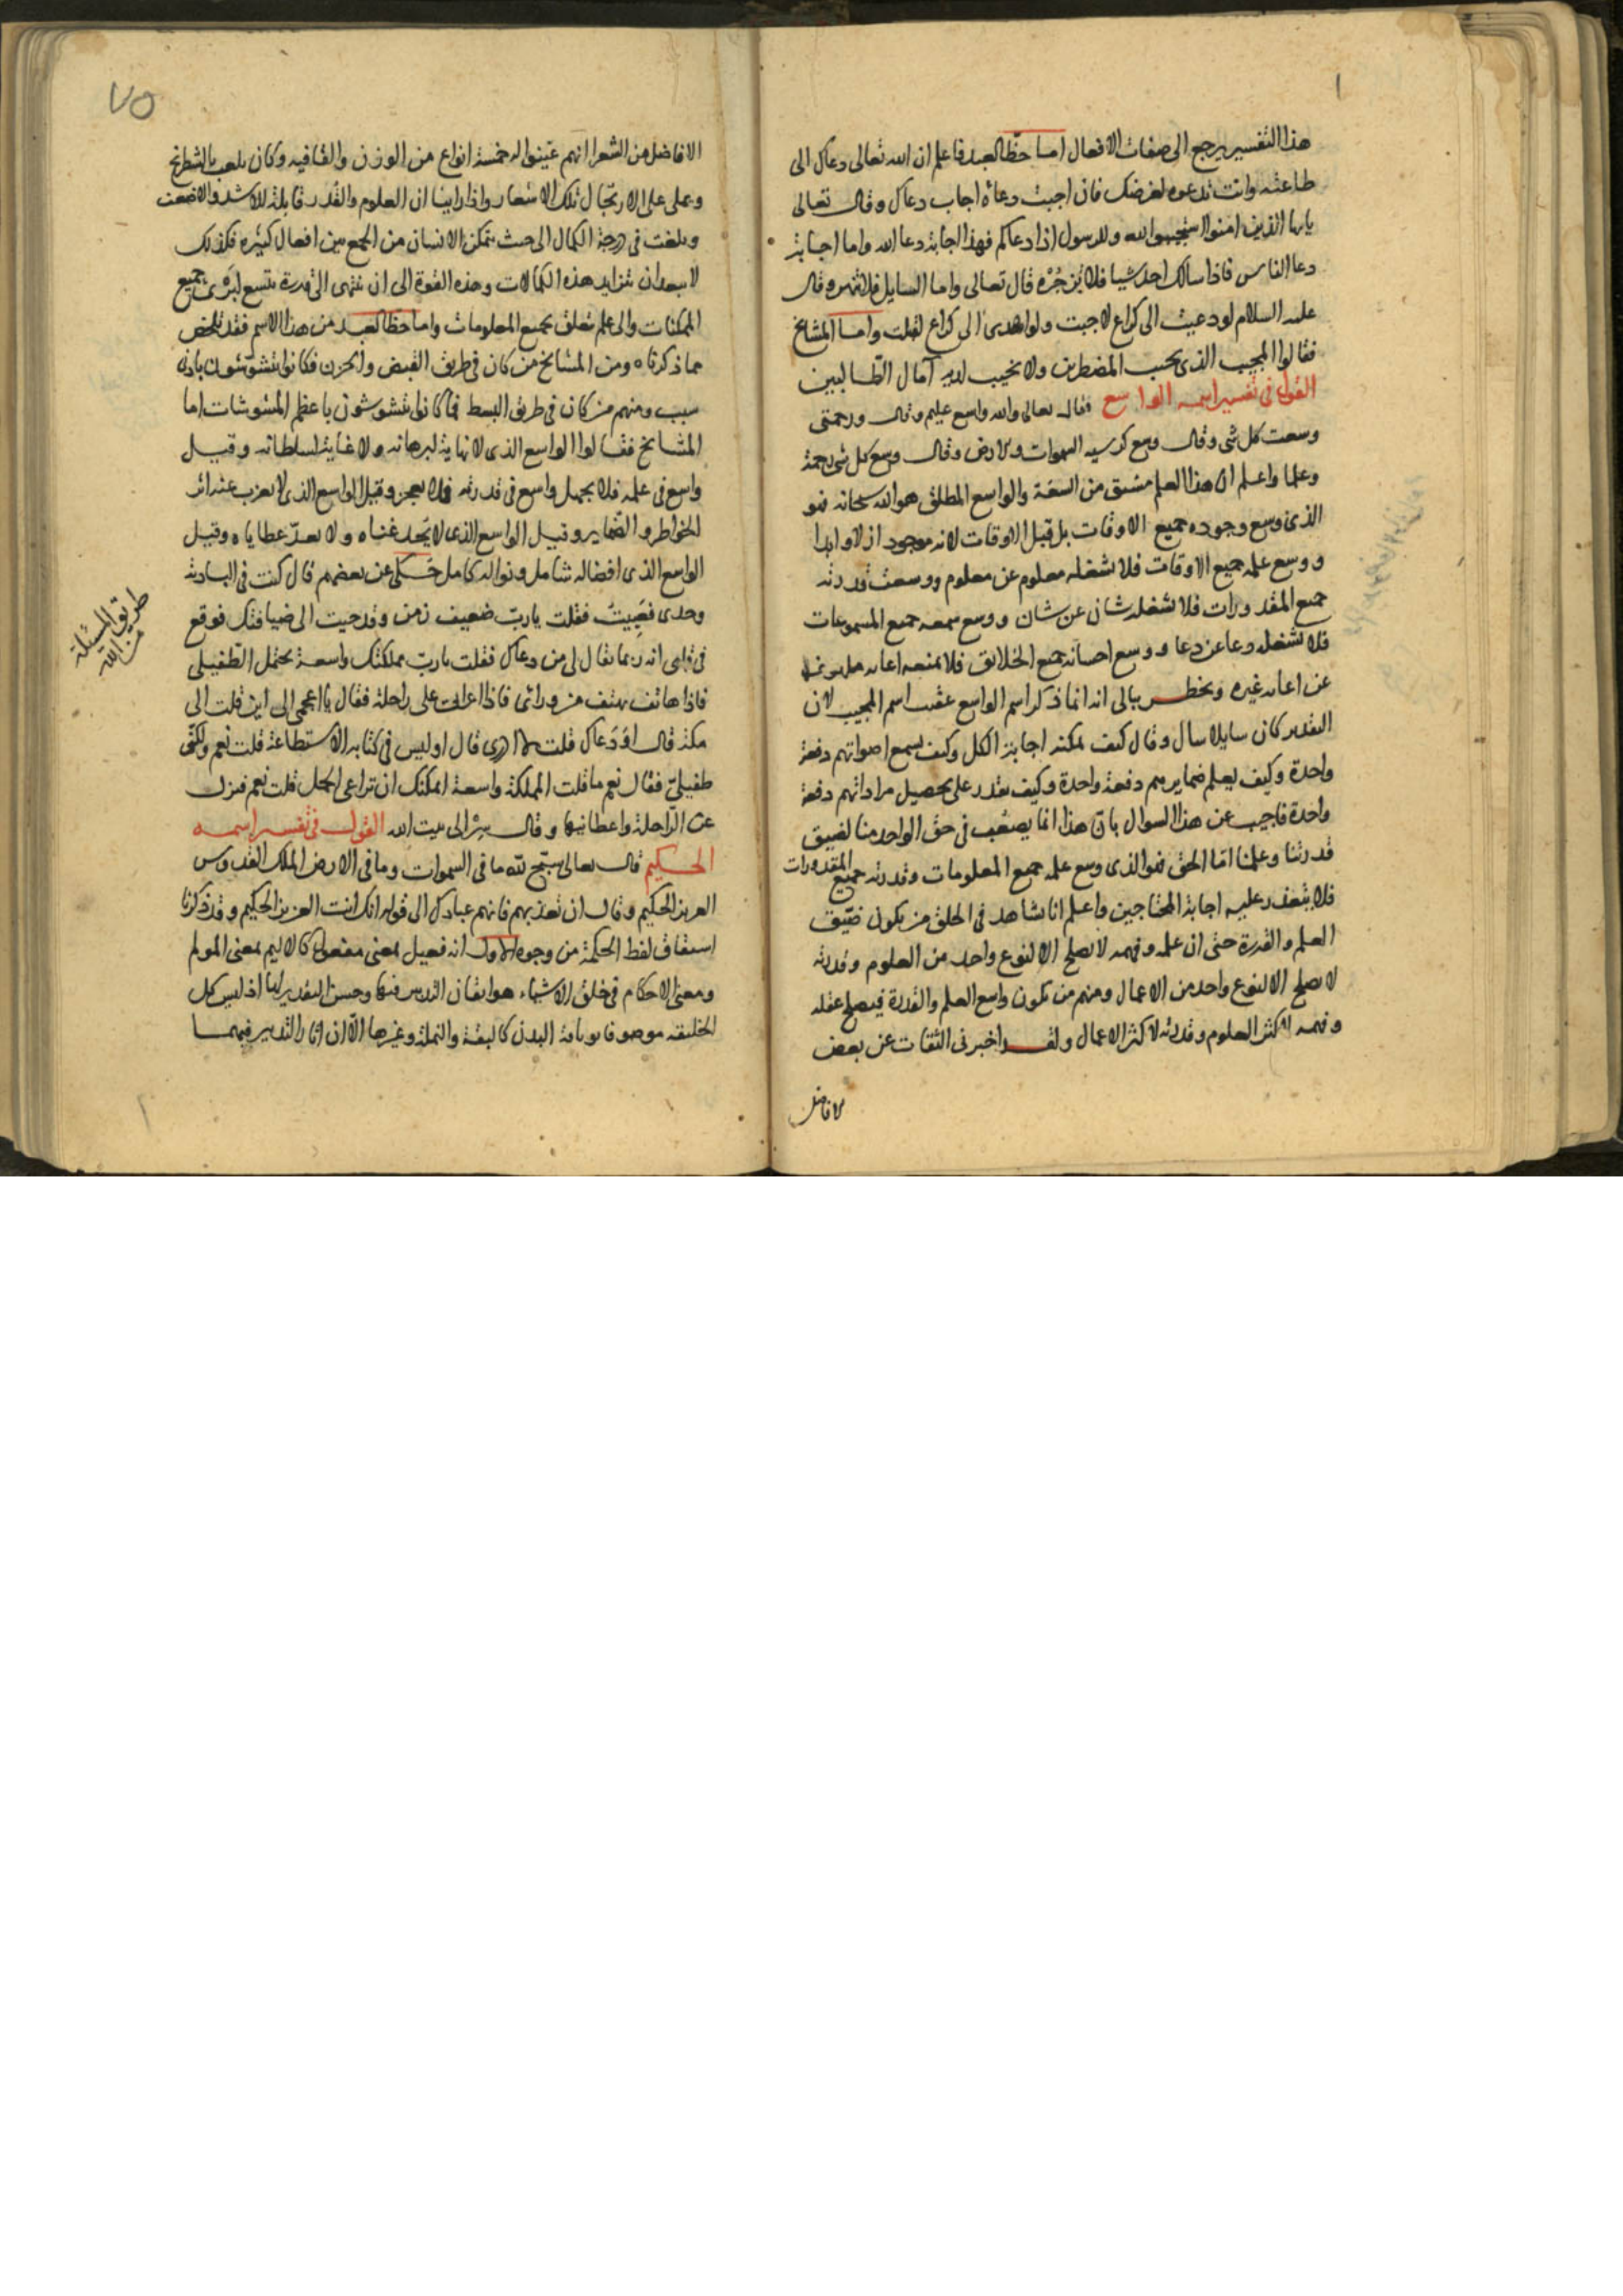 هذا التفسير يرجع الى صفات الافعال اما حظ العبد فاعلم ان الله تعالى دعاك الى
طاعته وانت تدعوه لغرضك فان اجبت دعاه اجاب دعاك وقال تعالى
يايها الذين امنوا استجيبوا لله وللرسول اذا دعاكم فهذا اجابة دعا الله واما اجابة
دعا الناس فاذا سالك احد شيا فلا تزجره قال تعالى واما السايل فلا تنهر وقال
عليه السلام لو دعيت الى كراع لاجبت ولو اهدى الى كراع لقبلت واما المشايخ
فقالوا المجيب الذى يجيب المضطرين ولا يخيب لديه آمال الطالبين
القول فى تفسير اسمه الواسع فقال تعالى والله واسع عليم وقال ورحمتى
وسعت كل شى وقال وسع كرسيه السموات والارض وقال وسع كل شى رحمة
وعلما واعلم ان هذا العلم مشتق من السعة والواسع المطلق هو الله سبحانه فهو
الذى وسع وجوده جميع الاوقات بل قبل الاوقات لانه موجود ازلا وابدا
ووسع علمه جميع الاوقات فلا يشغله معلوم عن معلوم ووسعت قدرته
جميع المقدورات فلا يشغله شان عن شان ووسع سمعه جميع المسموعات
فلا يشغله دعا عن دعا ووسع احسانه جميع الخلايق فلا يمنعه اغاثة ملهوف
عن اغاثة غيره ويخطر ببالى انه انما ذكر اسم الواسع عقب اسم المجيب لان
التقدير كان سايلا سال وقال كيف يمكنه اجابة الكل وكيف يسمع اصواتهم دفعة
واحدة وكيف يعلم ضمايرهم دفعة واحدة وكيف يقدر على تحصيل مراداتهم دفعة
واحدة فاجيب عن هذا السوال بان هذا انما يصعب فى حق الواحد منا لضيق
قدرتنا وعلمنا اما الحق فهو الذى وسع علمه جميع المعلومات وقدرته جميع المقدورات
فلا يتعذر عليه اجابة المحتاجين واعلم انا نشاهد فى الخلق من يكون ضيق
العلم والقدرة حتى ان علمه وفهمه لا يصلح الا لنوع واحد من العلوم وقدرته
لا يصلح الا لنوع واحد من الاعمال ومنهم من يكون واسع العلم والقدرة فيصلح عقله
وفهمه لاكثر العلوم وقدرته لاكثر الاعمال ولقد اخبرنى الثقات عن بعض
لافاضل
٧٥
الافاضل من الشعرا انهم عينوا له خمسة انواع من الوزن والقافيه وكان يلعب بالشطرنج
ويملى على الارتجال تلك الاشعار واذا راينا ان العلوم والقدر قابلة للاشد والاضعف
وبلغت فى درجة الكمال الى حيث يتمكن الانسان من الجمع بين افعال كثيره فكذلك
لا يبعد ان تتزايد هذه الكمالات وهذه القوة الى ان تنتهى الى قدرة يتسع لجميع
الممكنات والى علم يتعلق بجميع المعلومات واما حظ العبد من هذا الاسم فقد تلخص
مما ذكرناه ومن المشايخ من كان فى طريق القبض والحزن فكانوا يتشوشون بادنى
سبب ومنهم من كان فى طريق البسط فما كانوا يتشوشون باعظم المشوشات اما
المشايخ فقالوا الواسع الذى لا نهاية لبرهانه ولا غاية لسلطانه وقيل
واسع فى علمه فلا يجهل واسع فى قدرته فلا يعجز وقيل الواسع الذى لا يعزب عنه اثر
الخواطر والضماير وقيل الواسع الذى لا يحد غناه ولا يعد عطاياه وقيل
الواسع الذى افضاله شامل ونواله كامل حكى عن بعضهم قال كنت فى البادية
وحدى فعييت فقلت يارب ضعيف زمن وقد جيت الى ضيافتك فوقع
فى قلبى انه ربما يقال لى من دعاك فقلت يارب مملكتك واسعة يحتمل الطفيلى
فاذا هاتف يهتف من ورائى فاذا اعرابى على راحلة فقال يا اعجمى الى اين قلت الى
مكة قال اودعاك قلت لا ادرى قال اوليس فى كتابه الاستطاعة قلت نعم ولكنى
طفيلى فقال نعم ما قلت المملكة واسعة ايمكنك ان تراعى الجمل قلت نعم فنزل
عن الراحلة واعطانيها وقال سر الى بيت الله القول فى تفسير اسمه
الحكيم قال تعالى يسبح لله ما فى السموات وما فى الارض الملك القدوس
العزيز الحكيم وقال ان تعذبهم فانهم عبادك الى قوله انك انت العزيز الحكيم وقد ذكرنا
اشتقاق لفظ الحكمة من وجوه الاول انه فعيل بمعنى مفعول كالاليم بمعنى المولم
ومعنى الاحكام فى خلق الاشياء هو اتقان التدبير فيها وحسن التقدير لها اذ ليس كل
الخليقه موصوفا بوثاقة البدن كالبقة والنملة وغيرها الا ان اثار التدبير فيهما
طريق المسئلة
من الله